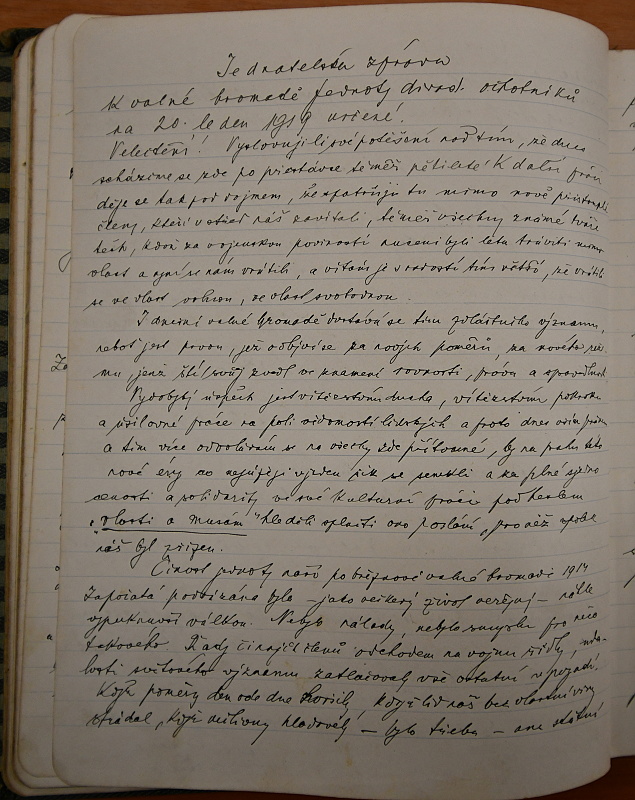 Jednatelská zpráva
k valné hromadě Jednoty divad. ochotníků
na 20. leden 1919 určené.
Velectění! Vyslovuji své potěšení nad tím, že dnes
scházíme se zde po přestávce téměř pětileté! K další práci
děje se tak pod dojmem, že spatřuji tu mimo nově přistouplé
členy, kteří v střed náš zavítali, téměř všechny známé tváře
těch, kdož za vojenskou povinností nuceni byli léta tráviti mimo
vlast a nyní se nám vrátili, a vítám je s radostí tím větší, že vrátili
se ve vlast volnou, ve vlast svobodnou.
I dnešní valné hromadě dostává se tím zvláštního významu,
neboť jest prvou, jež odbývá se za nových poměrů, za nového
jenž žití svůj zvedl ve znamení rovnosti, práva a spravedlnosti.
Vydobytý úspěch jest vítězstvím ducha, vítězstvím pokroku
a úsilovné práce na poli vědomostí lidských a proto dnes
a tím více odvolávám se na všechny zde přítomné, by na prahu této
nové éry co nejúžeji v jeden šik se semkli a za plné
cennosti a solidarity ve své kulturní práci pod heslem
„vlasti a musám" hleděli splniti ono poslání, pro něž spolek
náš byl zřízen.
Činnost jednoty naší po březnové valné hromadě 1914
započatá podvázána byla – jako veškerý život veřejný – náhle
vypuknuvší válkou. Nebylo nálady, nebylo smyslu pro něco
takového. Řady činných členů odchodem na vojnu řídly,
losti světového významu zatlačovaly vše ostatní v pozadí.
Když poměry den ode dne horšily, když lid náš bez vlastní viny
strádal, když miliony hladověly – bylo třeba – ano